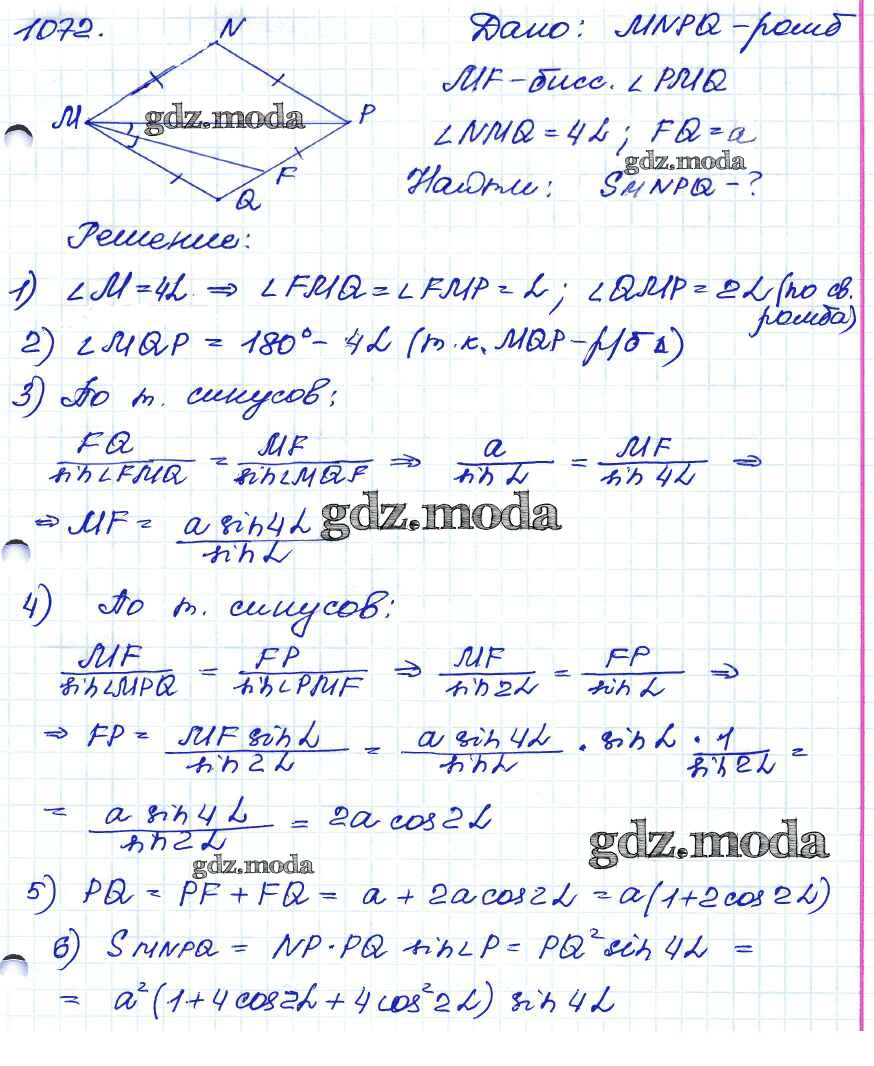 1072.
N
M
P
F
Q
Дано: MNPQ - ромб
MF - бисс. ∠PMQ
∠NMQ = 4α ; FQ = a
Найти: SMNPQ - ?
gdz.moda
gdz.moda
Решение:
1) ∠M = 4α ⇒ ∠FMQ = ∠FMP = α ; ∠QMP = 2α (по св. ромба)
2) ∠MQP = 180° - 4α (т.к. MQP - р/б Δ)
3) По т. синусов:
FQ / sin∠FMQ = MF / sin∠MQF ⇒ a / sin α = MF / sin 4α ⇒
⇒ MF = a sin 4α / sin α
gdz.moda
4) По т. синусов:
MF / sin∠MPQ = FP / sin∠PMF ⇒ MF / sin 2α = FP / sin α ⇒
⇒ FP = MF sin α / sin 2α = a sin 4α / sin α · sin α · 1 / sin 2α =
= a sin 4α / sin 2α = 2a cos 2α
gdz.moda
gdz.moda
5) PQ = PF + FQ = a + 2a cos 2α = a(1 + 2cos 2α)
6) SMNPQ = NP · PQ sin∠P = PQ² sin 4α =
= a² (1 + 4cos 2α + 4cos² 2α) sin 4α